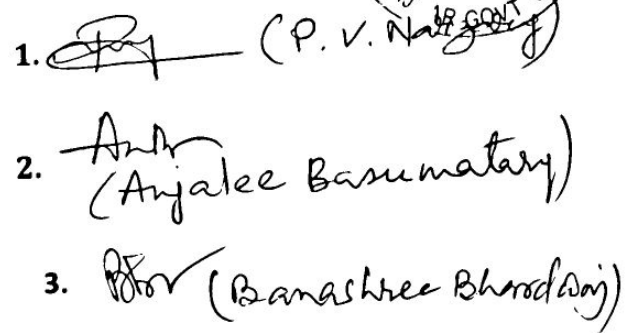 1. (P. V.
2.
(Anjalee Basumatary)
3. (Banashree Bhardwaj)